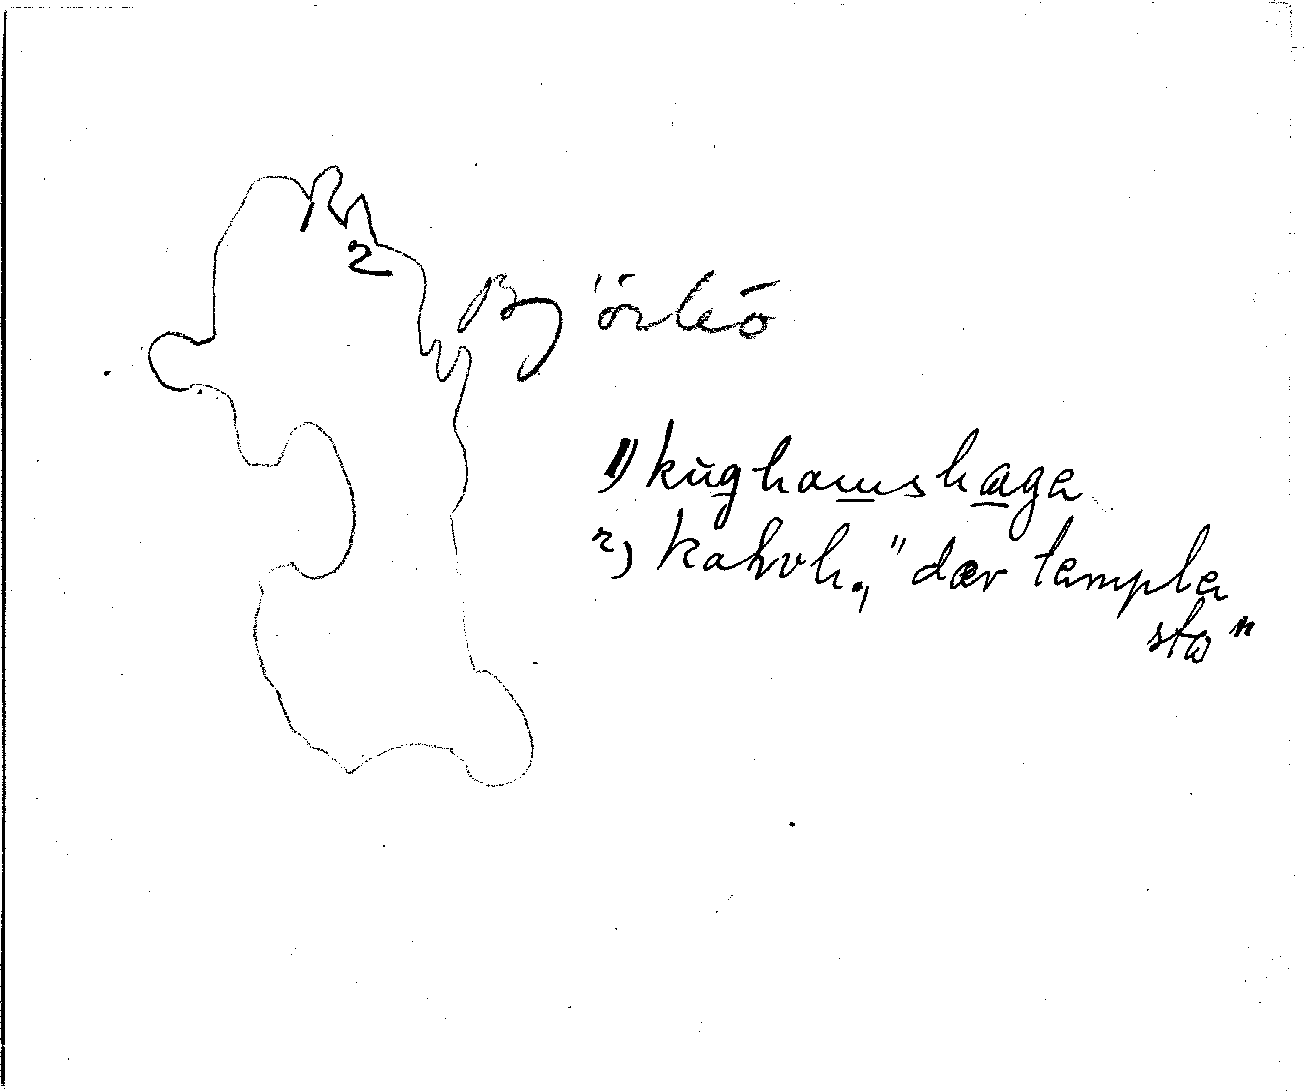 2
Björkö
1) kughamshaga
2) kahvh., "dær templa
sta"